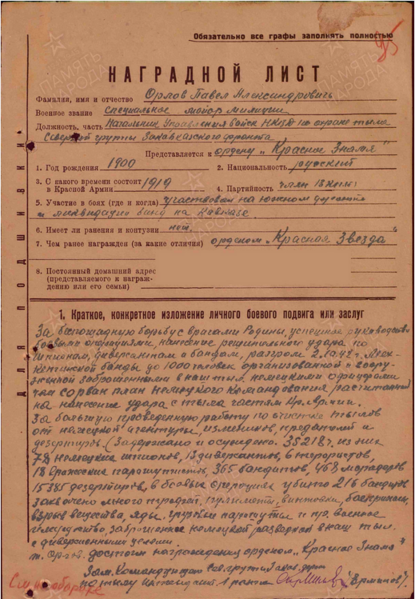 Обязательно все графы заполнять полностью
НАГРАДНОЙ ЛИСТ
Фамилия, имя и отчество Орлов Павел Александрович
Военное звание специальное майор милиции
Должность, часть Начальник Управления войск НКВД по охране тыла
Северной группы Закавказского фронта
Представляется к ордену "Красное Знамя"
1. Год рождения 1900 2. Национальность русский
3. С какого времени состоит
в Красной Армии 1919 4. Партийность член ВКП(б)
5. Участие в боях (где и когда) участвовал на южном фронте
и ликвидации банд на Кавказе.
6. Имеет ли ранения и контузии нет.
7. Чем ранее награжден (за какие отличия) орденом "Красная Звезда"
8. Постоянный домашний адрес
(представляемого к награждению
или его семьи)
ДЛЯ ПОДШИВКИ
1. Краткое, конкретное изложение личного боевого подвига или заслуг
За беспощадную борьбу с врагами Родины, успешное руководство
боевыми операциями, нанесение решительного удара по
шпионам, диверсантам и бандам, разгром
банды до 1000 человек организованной и вооруженной
заброшенными в наш тыл немецкими отрядами
чем сорван план немецкого командования рассчитанный
на нанесение удара с тыла частям Кр. Армии.
За большую проведенную работу по очистке тылов
от немецкой агентуры, изменников, предателей и
дезертиров (Задержано и осуждено. 35218 г. из них
78 немецких шпионов, 13 диверсантов, 6 террористов,
18 вражеских парашютистов, 365 бандитов, 468 мародеров
15385 дезертиров, в боевых операциях убито 216 бандитов
захвачено много пулеметов, винтовки, боеприпасы,
взрыв вещества, яды, грузовые парашюты и пр. военное
имущество, заброшенное немецкой разведкой в наш тыл
с диверсионными целями.
т. Орлов достоин награждения орденом "Красное Знамя"
Зам. Командующего Сев. группы Закав. фронта
по тылу Ермилов (Ермилов)